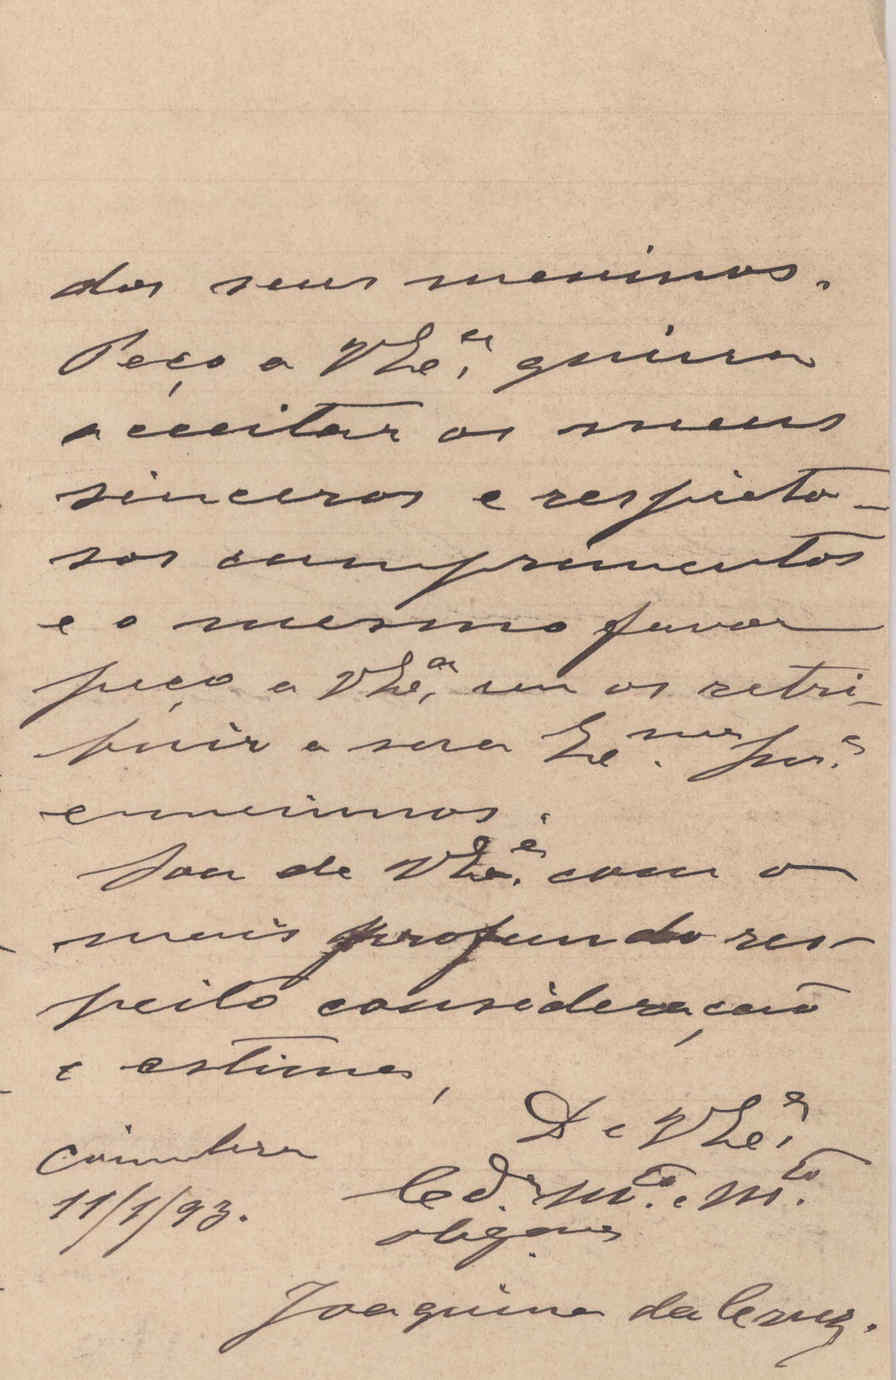 dos seus meninos.
Peço a VEx.ª queira
acceitar os meus
sinceros e respeito-
sos cumprimentos
e o mesmo favor
peço a VEx.ª em os retri-
buir a sua Ex.ma
Sou de VEx.ª com o
mais profundo res-
peito consideração
e estima,
De VEx.ª
Coimbra
Cr.dª M.to e M.to
11/1/93.
obrigada
Joaquina da Cruz.